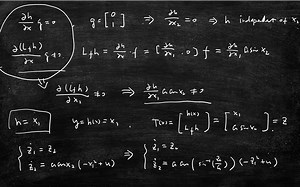 ∂h/∂x g = 0   g = [0 1]   ⇒ ∂h/∂x₂ = 0 ⇒ h independent of x₂
∂(Lfh)/∂x g ≠ 0   Lfh = ∂h/∂x · f = [∂h/∂x₁ , 0] f = ∂h/∂x₁ a sin x₂
⇒ ∂(Lfh)/∂x₂ ≠ 0 ⇒ ∂h/∂x₁ a cos x₂ ≠ 0
h = x₁   y = h(x) = x₁   T(x) = [h(x) Lfh] = [x₁ a sin x₂] = z
{ ż₁ = z₂   ⇒ { ż₁ = z₂
ż₂ = a cos x₂ (-x₁² + u)   ż₂ = a cos (sin⁻¹(z₂/a)) (-z₁² + u)